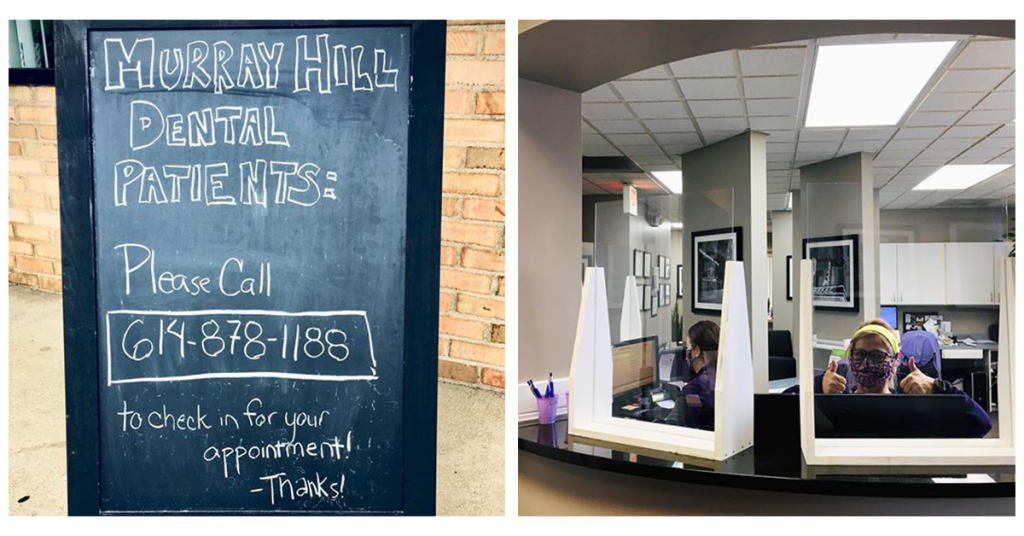 MURRAY HILL
DENTAL
PATIENTS:
Please Call
614-878-1188
to check in for your
appointment!
-Thanks!